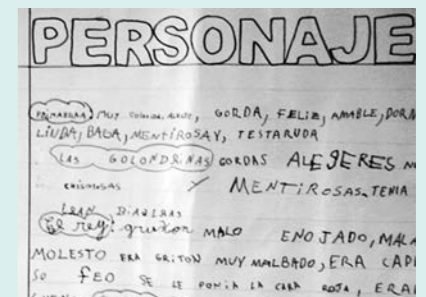 PERSONAJE
PRIMABERA MUY COLORIDA, ALEGRE, GORDA, FELIZ, AMABLE, DORM
LINDA, BAGA, MENTIROSAY, TESTARUDA
LAS GOLONDRINAS GORDAS ALEGERES
CHISMOSAS Y MENTIROSAS TENIA
ERAN DIABLRAS
El rey: griton MALO ENOJADO, MALA
MOLESTO ERA GRITON MUY MALBADO, ERA CAPR
SO FEO SE LE PONIA LA CARA ROJA, ERA